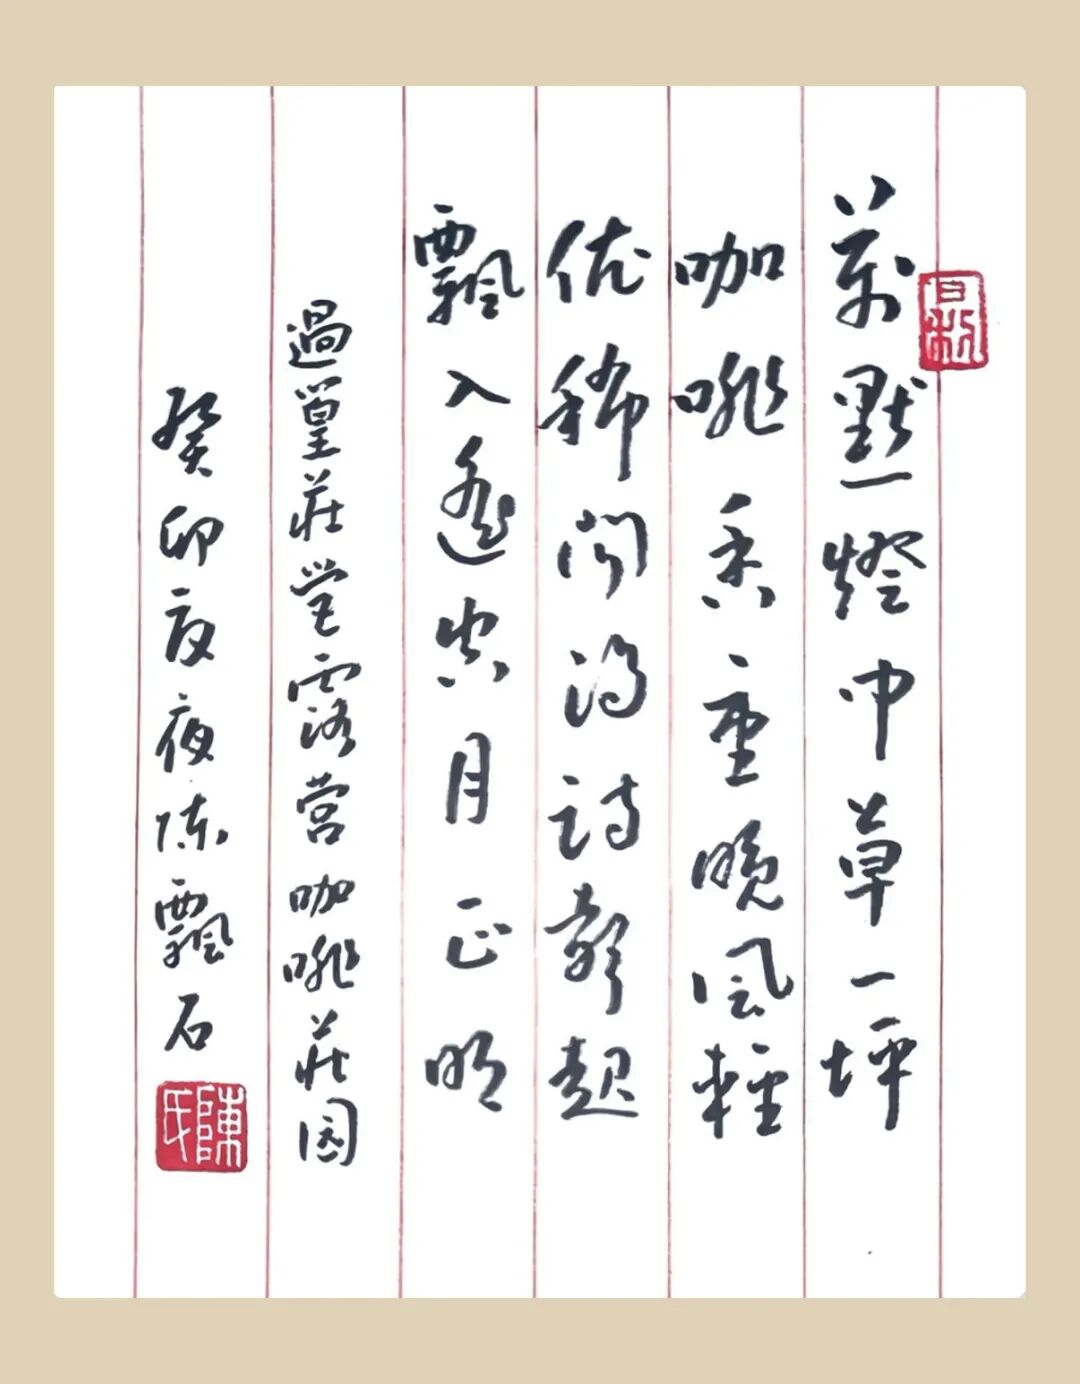 萬點燈中草一坪
咖啡香重晚風輕
依稀聞得詩聲起
飄入遙空月正明
過篁莊堂露營咖啡莊园
癸卯夏夜陈飄石
陳氏